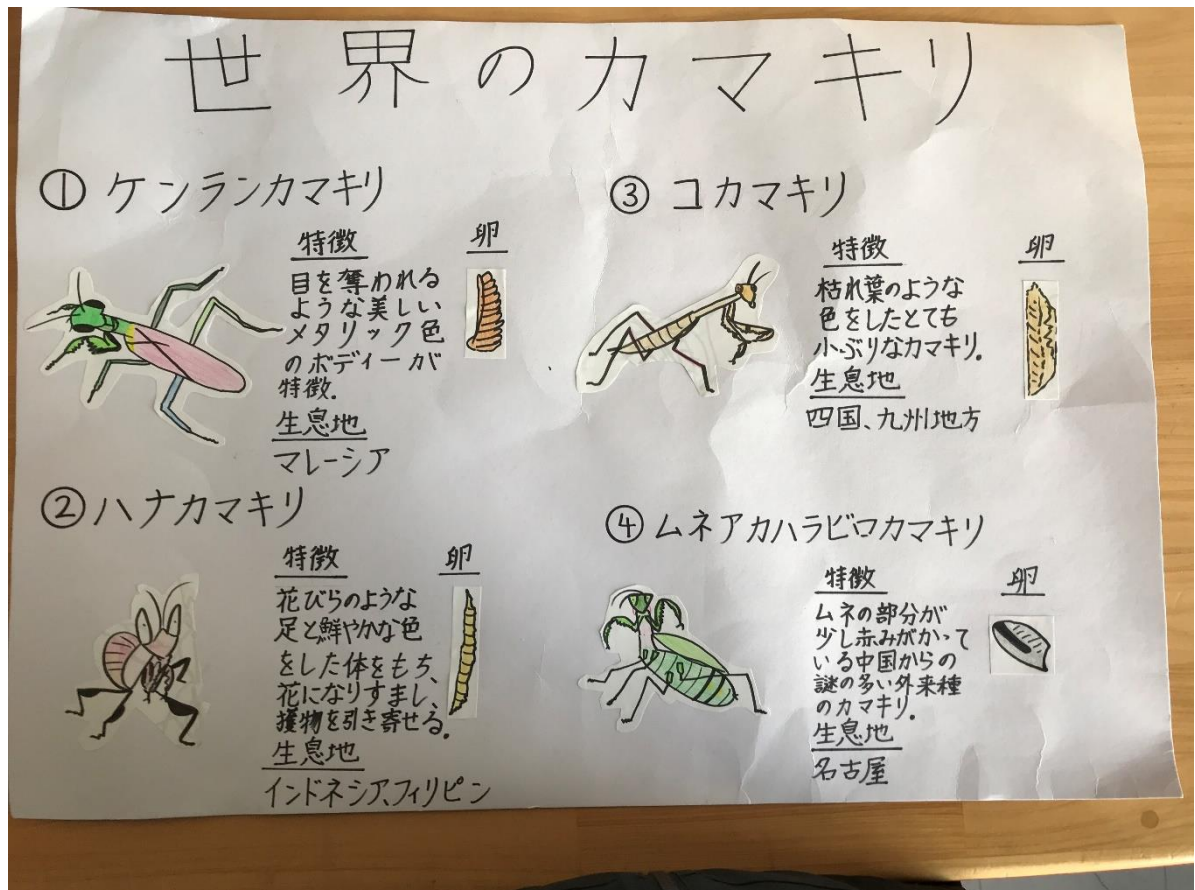 世界のカマキリ
① ケンランカマキリ
特徴
目を奪われる
ような美しい
メタリック色
のボディーが
特徴.
生息地
マレーシア
卵
② ハナカマキリ
特徴
花びらのような
足と鮮やかな色
をした体をもち、
花になりすまし、
獲物を引き寄せる.
生息地
インドネシア、フィリピン
卵
③ コカマキリ
特徴
枯れ葉のような
色をしたとても
小ぶりなカマキリ.
生息地
四国、九州地方
卵
④ ムネアカハラビロカマキリ
特徴
ムネの部分が
少し赤みがかって
いる中国からの
謎の多い外来種
のカマキリ.
生息地
名古屋
卵